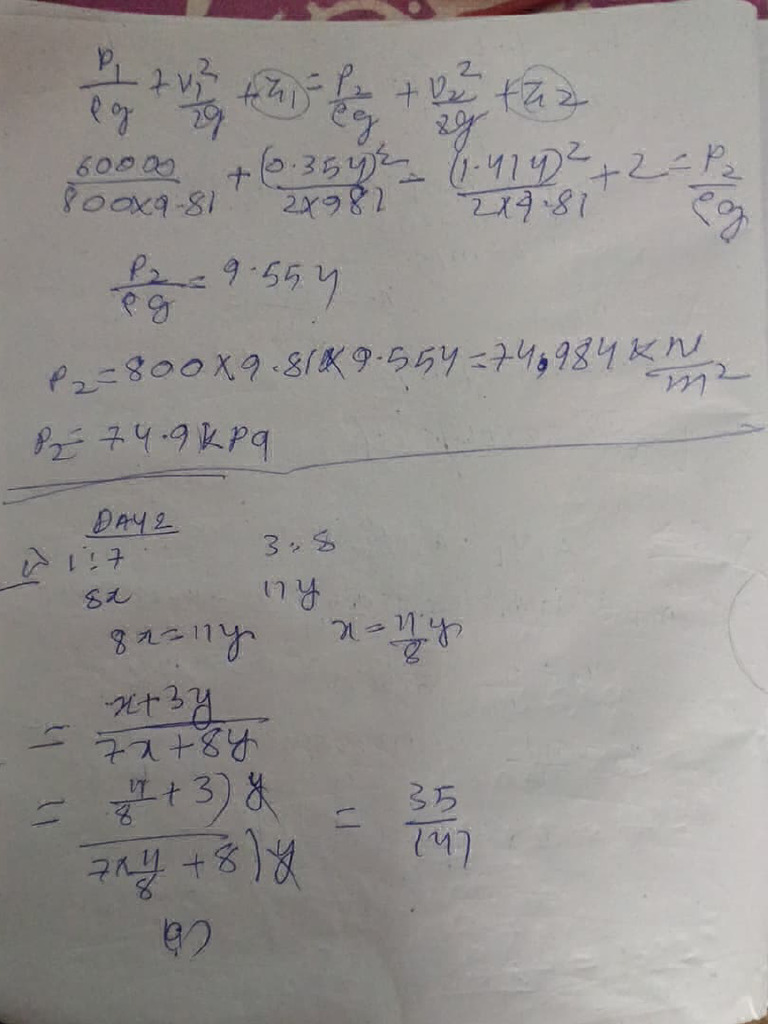 P₁/ρg + V₁²/2g + Z₁ = P₂/ρg + V₂²/2g + Z2
60000/800×9.81 + (0.354)²/2×981 = (1.414)²/2×9.81 + 2 = P₂/ρg
P₂/ρg = 9.554
P₂ = 800 × 9.81 × 9.554 = 74,984 KN/m²
P₂ = 74.9 KPa
DAY 2
1) 1:7 3:8
8x 11y
8x = 11y x = 11/8 y
= x+3y/7x+8y
= 11/8 + 3) y/7×11/8 + 8) y = 35/141